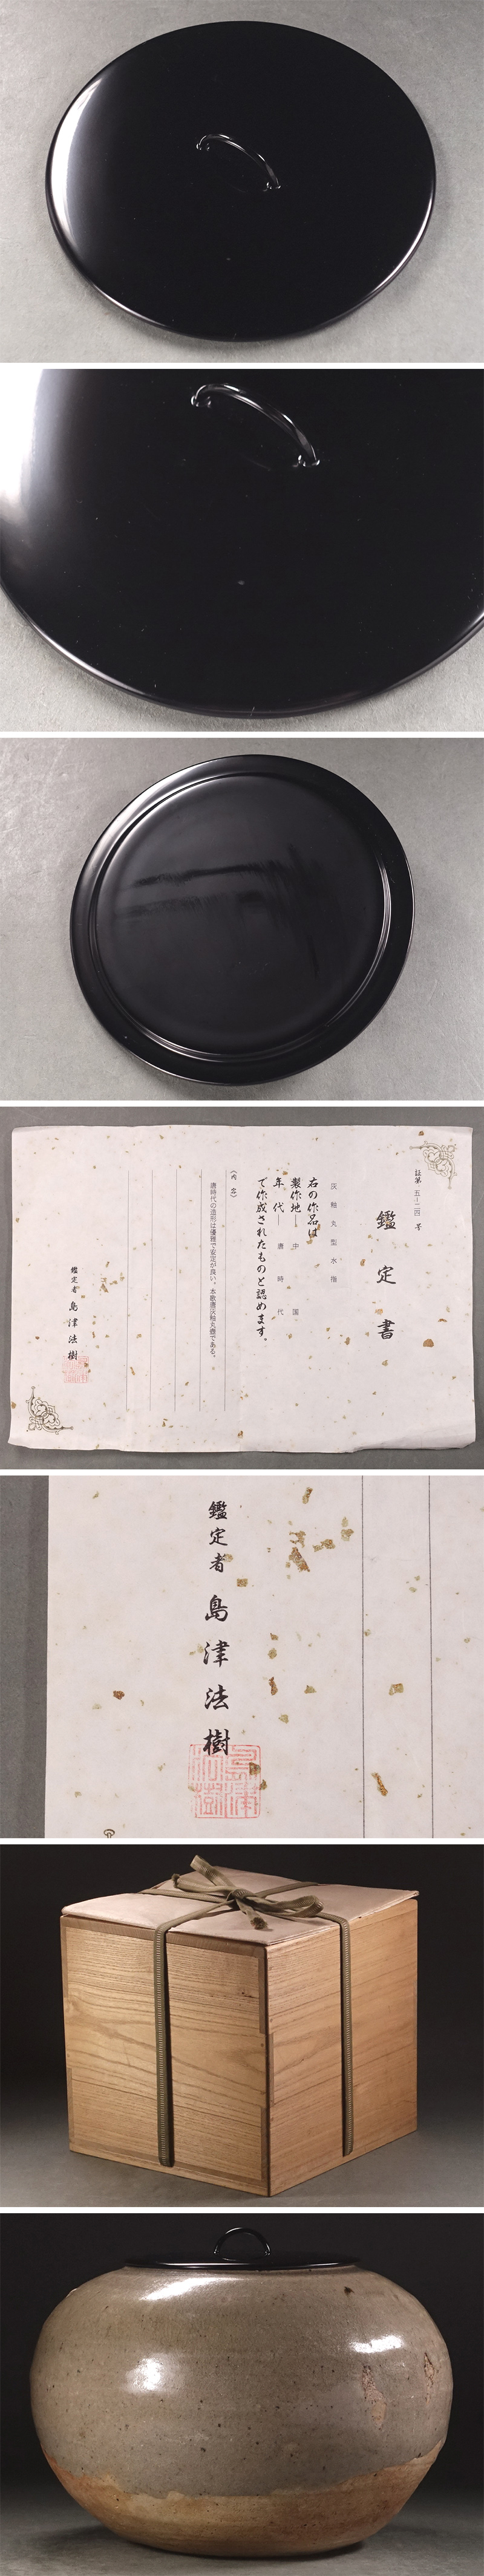 証第 五-二四 号
鑑定書
灰釉丸型水指
右の作品は
製作地― 中国
年代― 唐時代
で作成されたものと認めます。
(内容)
唐時代の造形は優雅で安定が良い。本歌唐灰釉丸壺である。
鑑定者 島津法樹
鑑定者 島津法樹